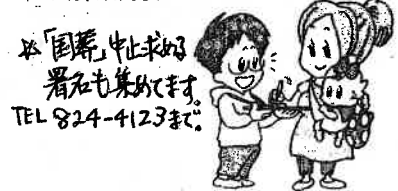 ※「国葬」中止求める
署名も集めてます。
TEL 824-4123まで。